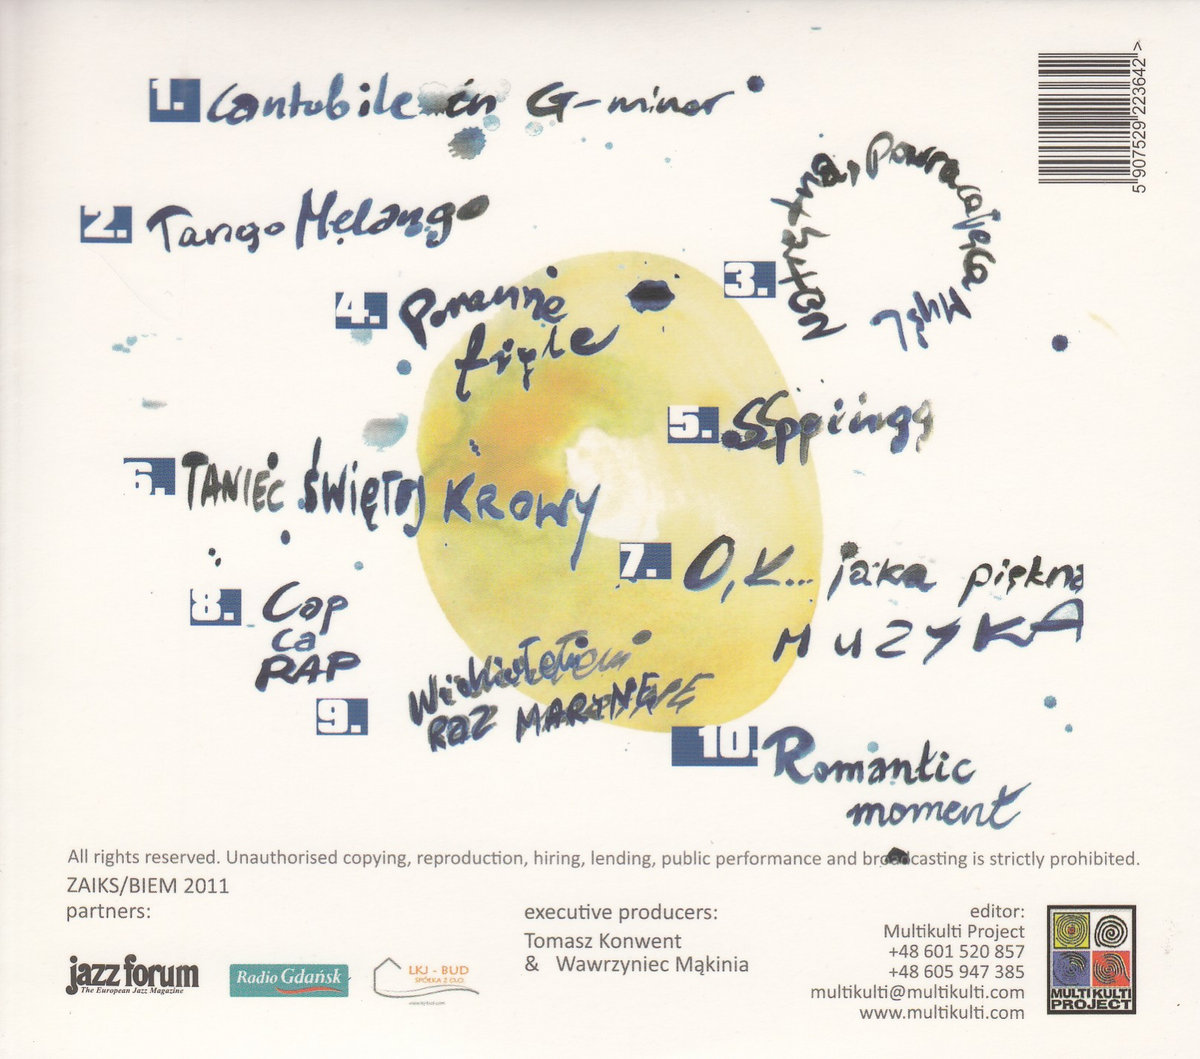 1. Cantabile in G-minor
5 907529 223642 >
2. Tango Melango
3. Natrętna, Powracająca Myśl
4. Poranne
fięle
5. SSppiingg
6. TANIEC ŚWIĘTEJ KROWY
7. O, K... jaka piękna
MUZYKA
8. Cap
ca
RAP
9.
RAZ
10. Romantic
moment
All rights reserved. Unauthorised copying, reproduction, hiring, lending, public performance and broadcasting is strictly prohibited.
ZAIKS/BIEM 2011
partners:
jazz forum
The European Jazz Magazine
Radio Gdańsk
LKJ - BUD
SPÓŁKA Z O.O.
executive producers:
Tomasz Konwent
& Wawrzyniec Mąkinia
editor:
Multikulti Project
+48 601 520 857
+48 605 947 385
multikulti@multikulti.com
www.multikulti.com
MULTIKULTI
PROJECT